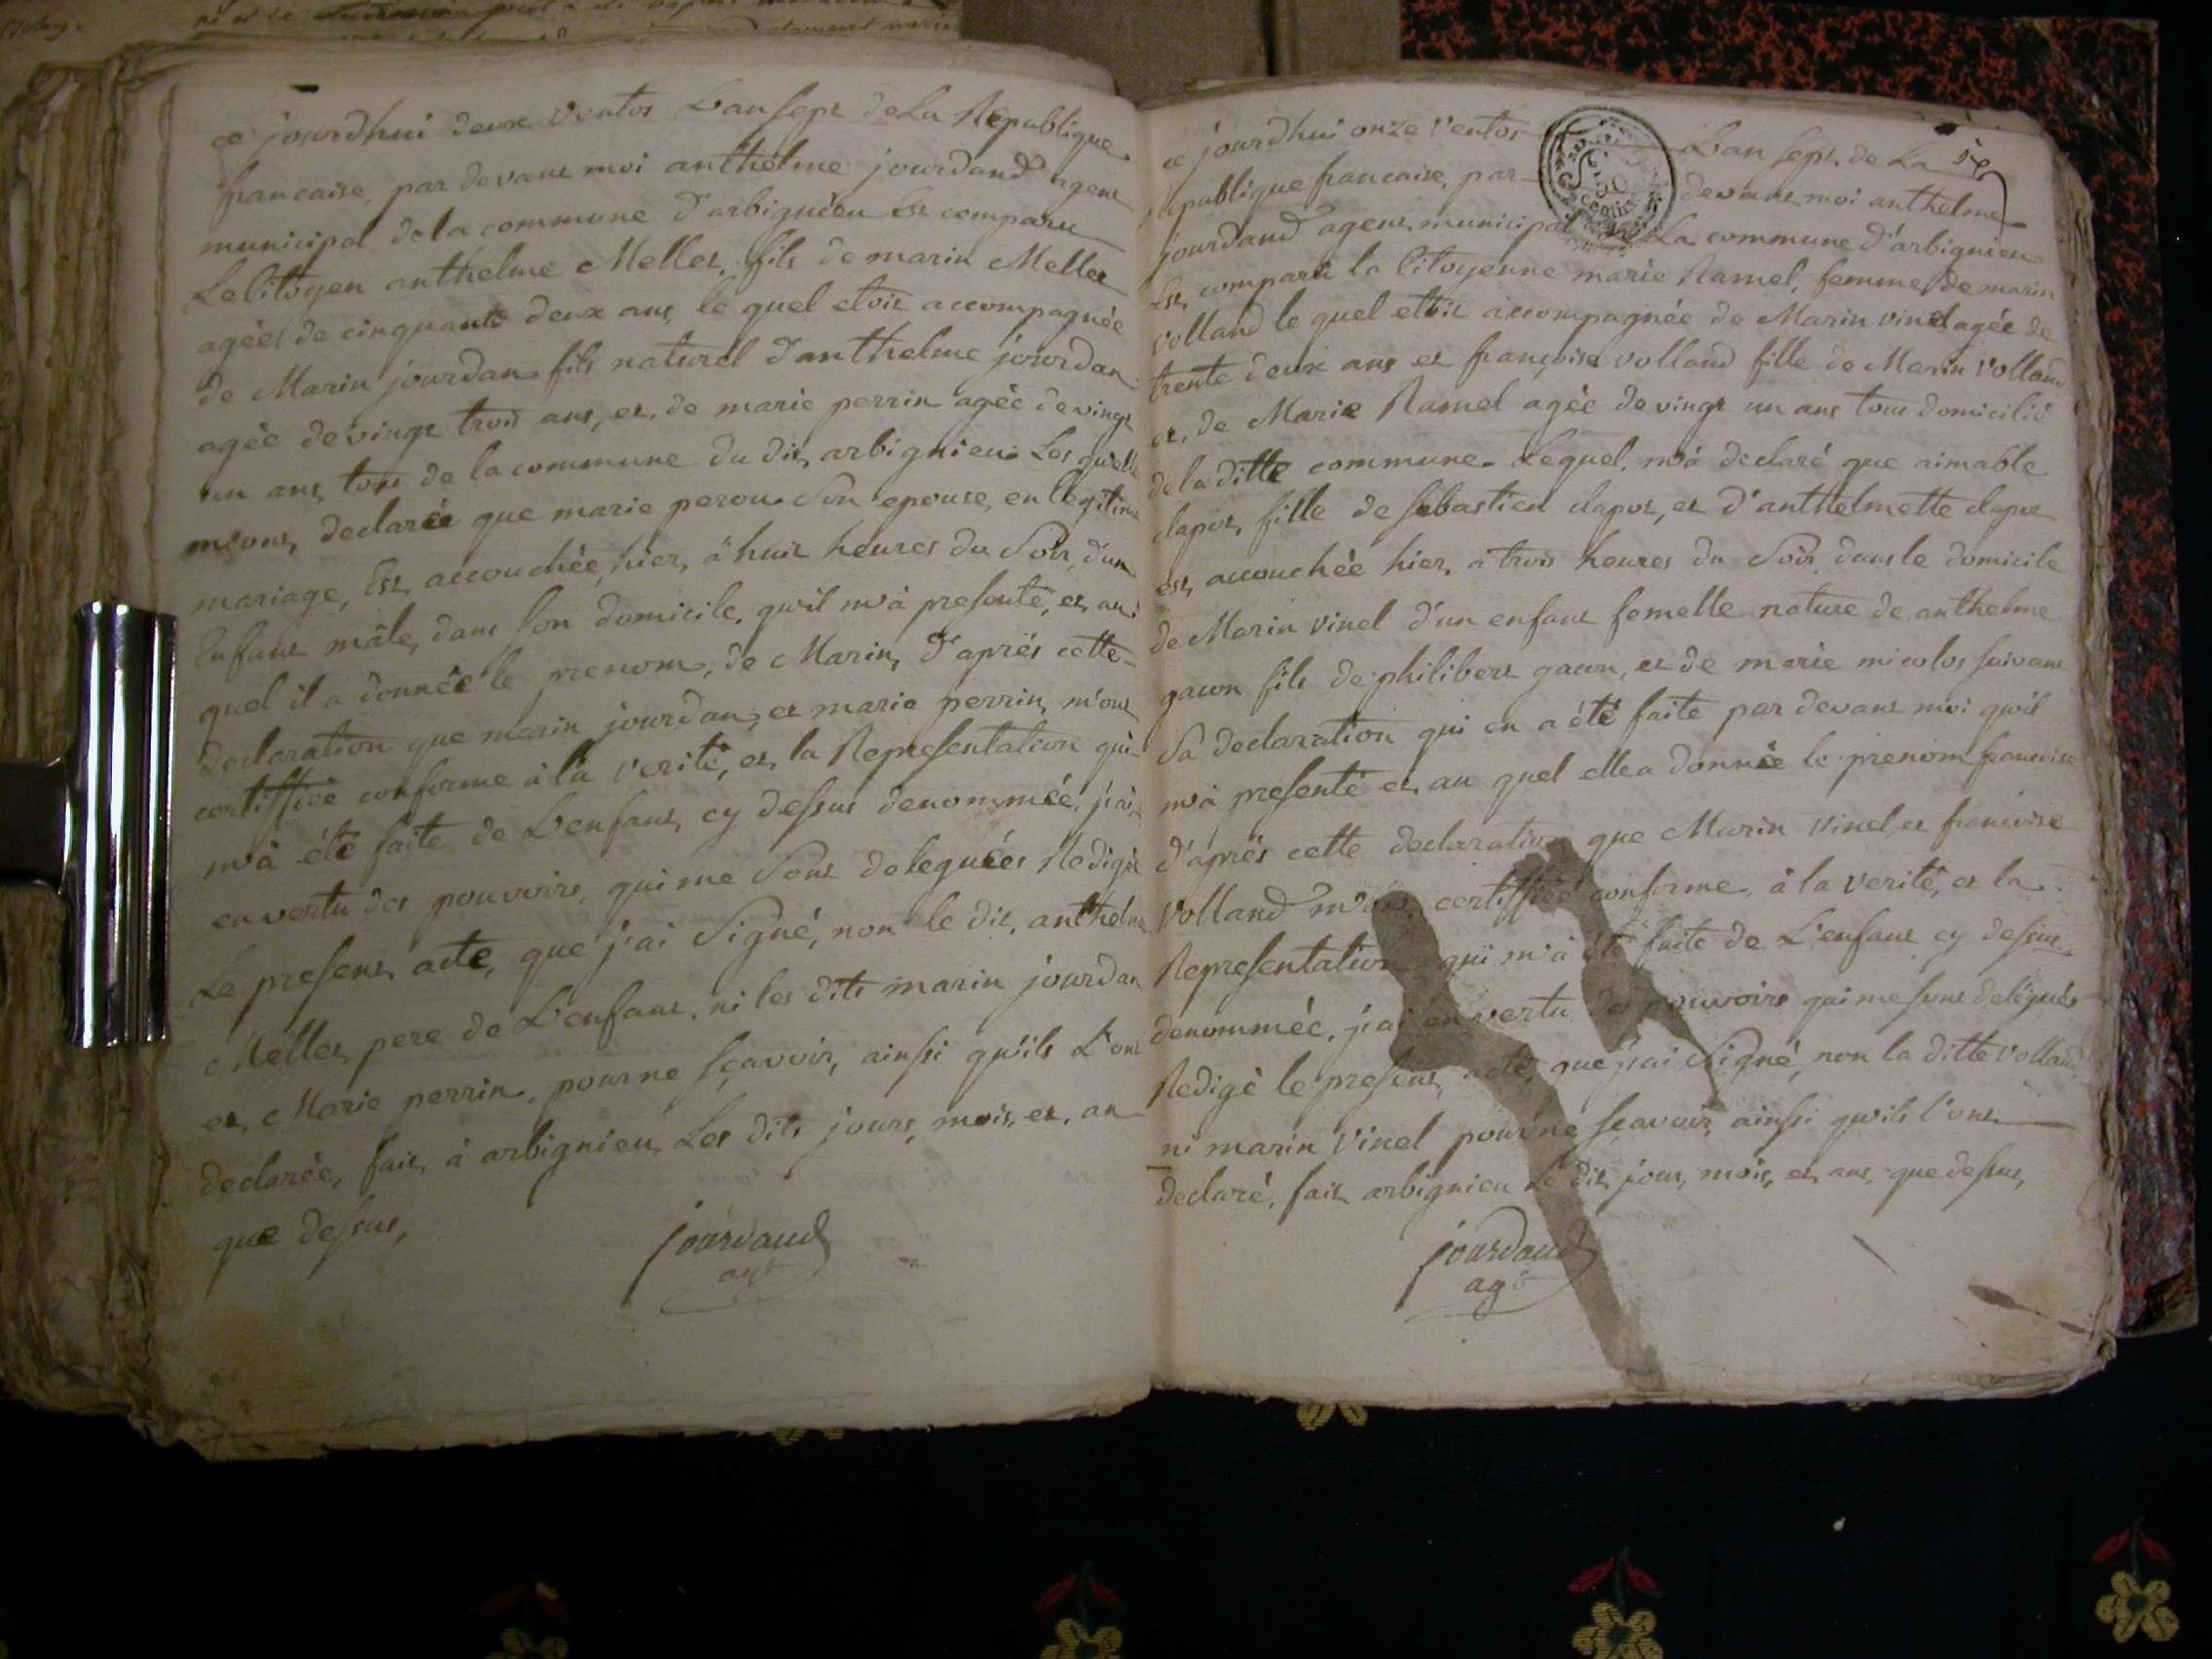 ce jourdhui deux ventos L'an sept de La Republique
francaise, par devant moi anthelme jourdand agent
municipal de la commune d'arbignieu Est comparu
Le Citoyen anthelme Mellet, fils de marin Mellet
agée de cinquante deux ans, le quel etoit accompagnée
de Marin jourdan fils naturel d'anthelme jourdan
agée de vingt trois ans, et de marie perrin agée de vingt
un ans, tous de la commune du dit arbignieu. Les quelle
m'ont, declarée que marie perou son epouse, en legitime
mariage, Est accouchée, hier, à huit heures du Soir, d'un
Enfant mâle, dans son domicile, qu'il m'à presenté, et au
quel il a donnée le prenom, de Marin, d'aprés cette
declaration que marin jourdan, et marie perrin, m'ont
certiffiée conforme à la verité, et la Representation qui
m'à été faite de L'enfant, cy dessus denommée, j'ai,
en vertu des pouvoirs, qui me Sont deleguées Redigée
Le present acte, que j'ai Signé, non le dit, anthelme
Mellet, pere de L'enfant, ni les dits marin jourdan
et, Marie perrin, pour ne sçavoir, ainssi qu'ils L'ont
declarée, fait, à arbignieu, Les dits jours, mois, et, an
que dessus,
jourdand
agt
ce jourdhui onze Ventos L'an sept de La
Republique francaise, par devant moi anthelme
jourdand agent municipal de La commune d'arbignieu
Est comparu la Citoyenne marie Ramel, femme de marin
volland le quel etoit accompagnée de Marin vinel agée de
trente deux ans et françoise volland fille de Marin Volland
et, de Marie Ramel agée de vingt un ans tous domicilié
de la ditte commune. Lequel, m'à declaré que aimable
clapot, fille de sebastien clapot, et d'anthelmette clapot
est, accouchée hier, à trois heures du Soir, dans le domicile
de Marin vinel d'un enfant femelle nature de anthelme
fils de philibert et de marie micolos suivant
Sa declaration qui en a été faite par devant moi qu'il
m'à presenté et, au quel elle a donnée le prenom francoise
d'aprés cette declaration que Marin Vinel, et francoise
Volland m'ont certiffiée conforme, à la Verité, et la
Representation qui m'à été faite de L'enfant cy dessus
denommée, j'ai en vertu des pouvoirs qui me sont delégués
Redigé le present, acte, que j'ai Signé, non la ditte Volland
ni marin Vinel pour ne sçavoir, ainssi qu'ils l'ont
declaré, fait arbignieu Le dit jour, mois, et, ans, que dessus,
jourdand
agt